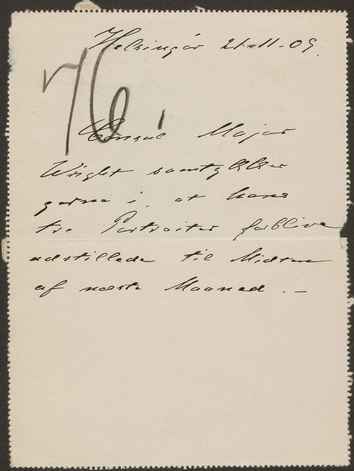 Helsingør 21-11-09.
76
Consul Major
Wright samtykker
gerne i, at hans
tre Portraiter forblive
udstillede til Midten
af næste Maaned. —